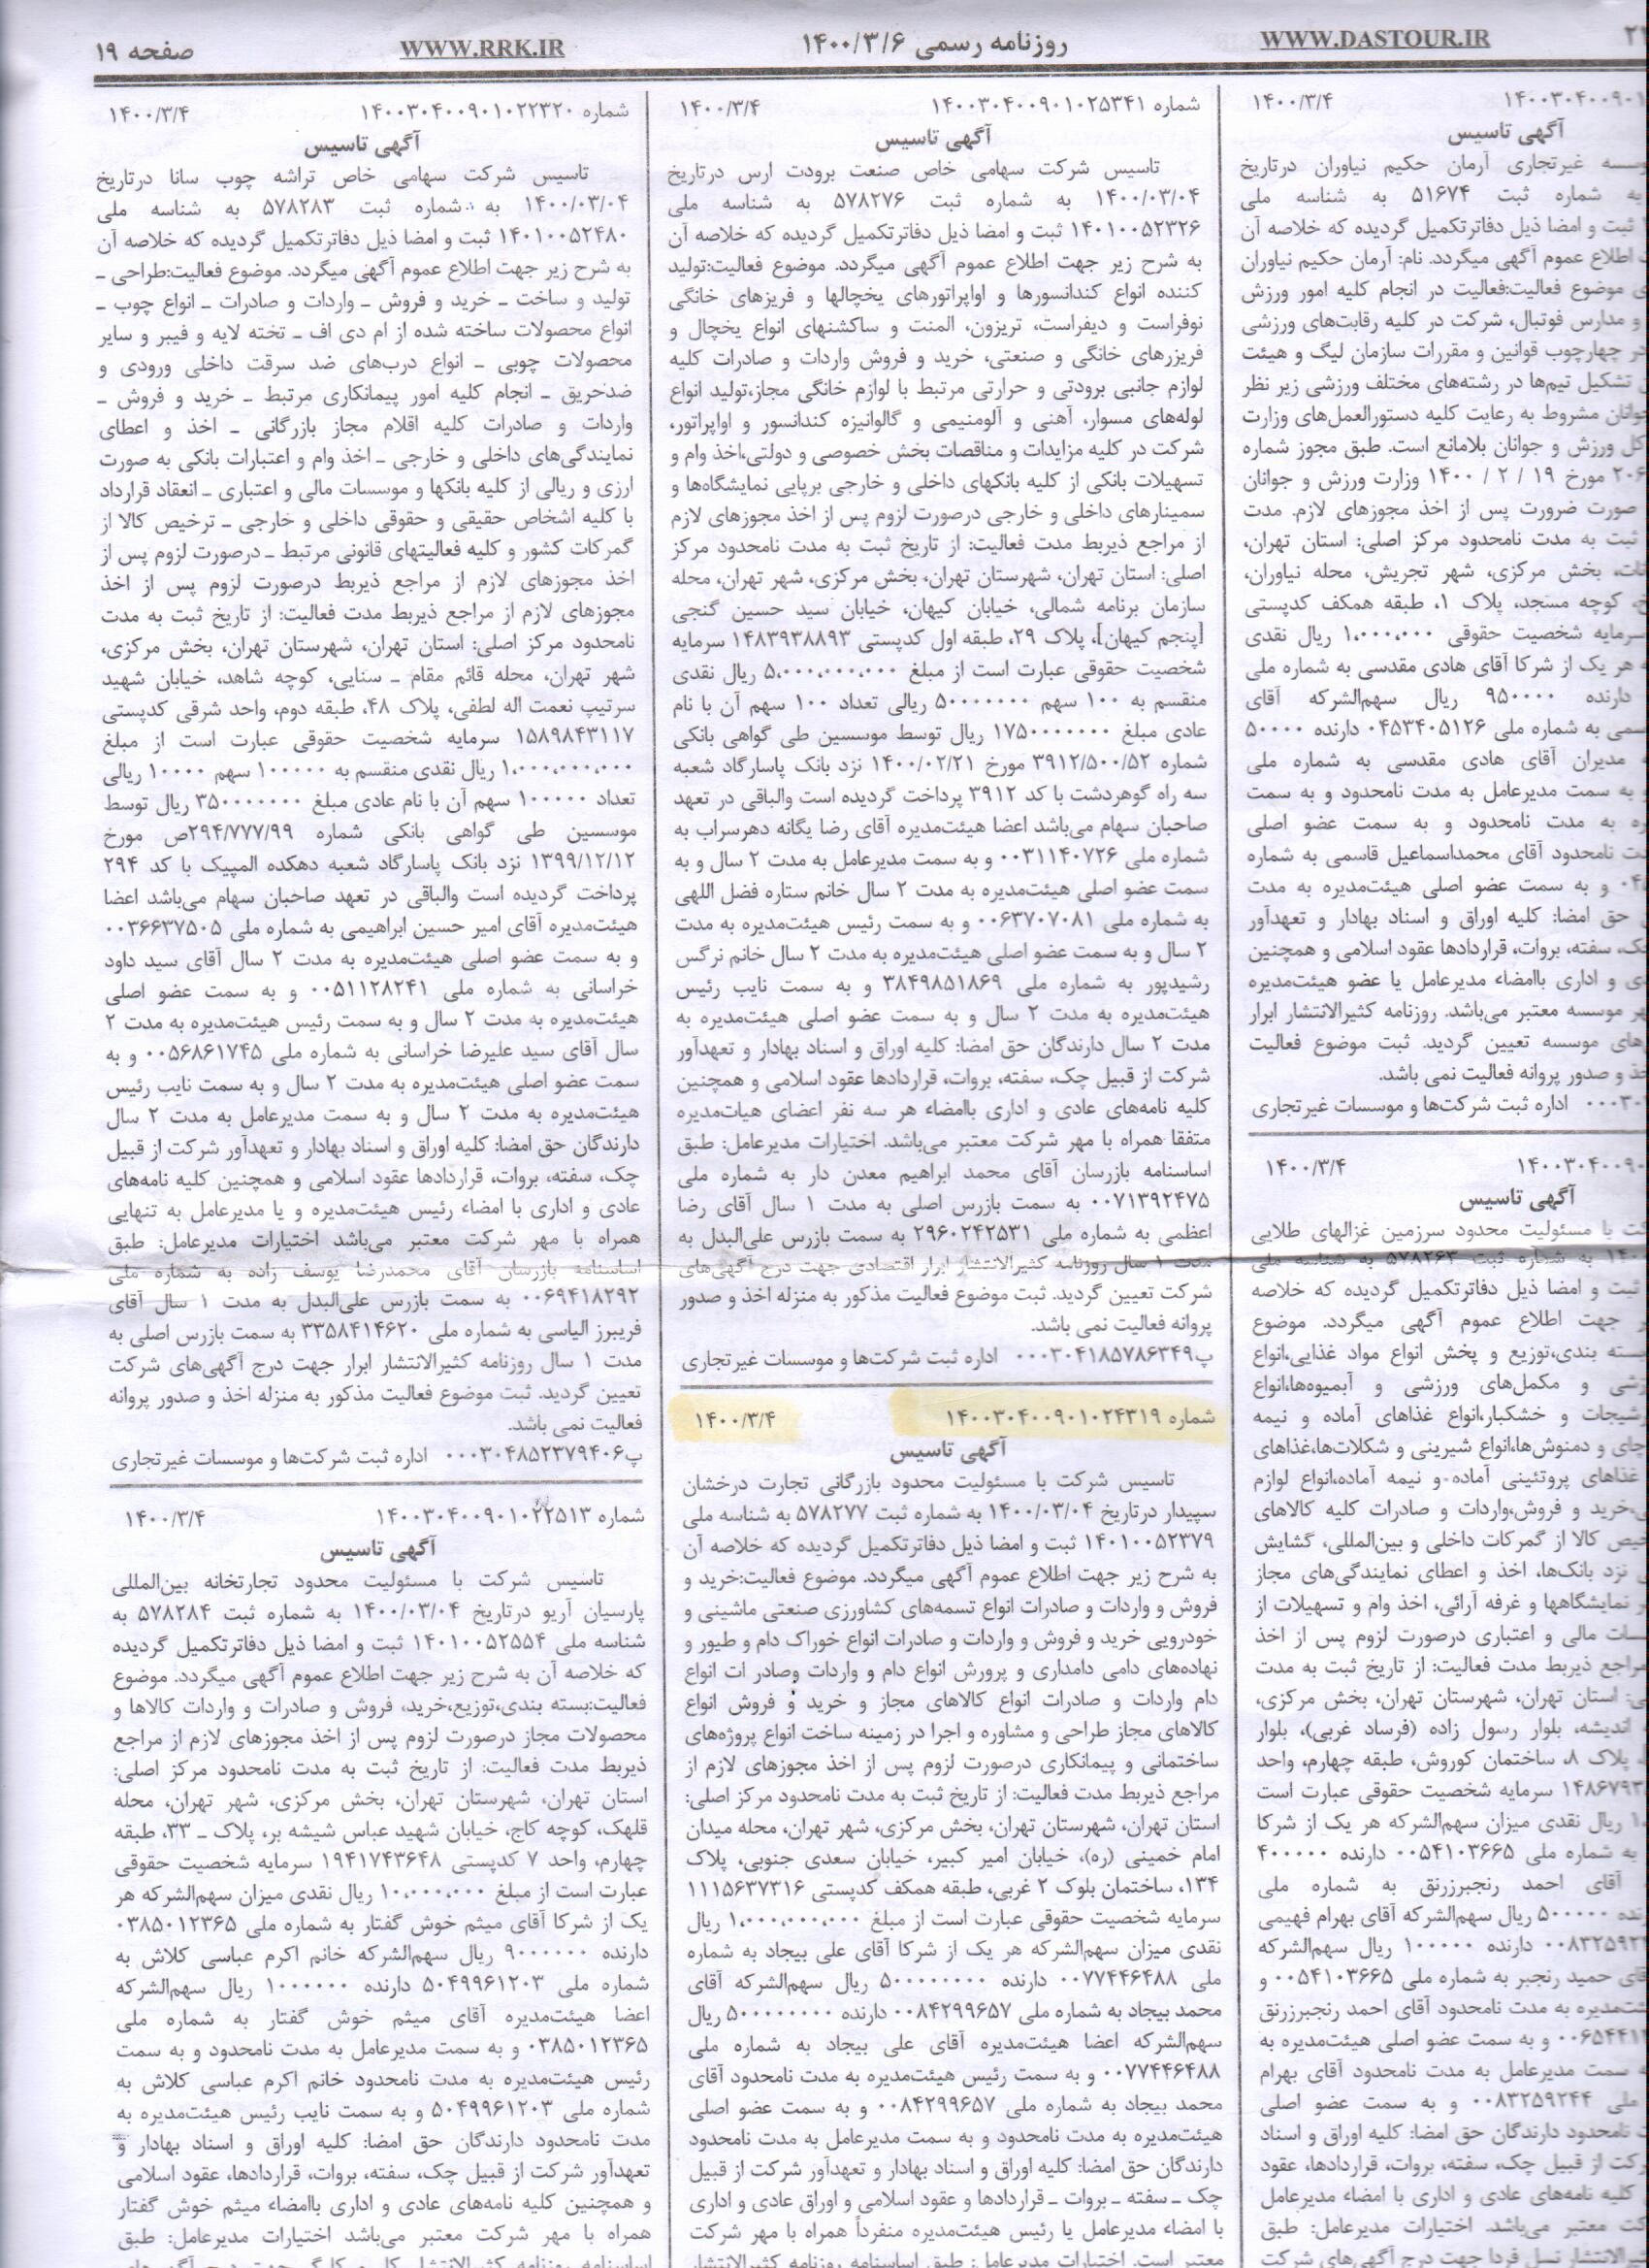 WWW.DASTOUR.IR
روزنامه رسمی ۱۴۰۰/۳/۶
WWW.RRK.IR
صفحه ۱۹
۱۴۰۰/۳/۴
آگهی تاسیس
غیرتجاری آرمان حکیم نیاوران درتاریخ
به شماره ثبت ۵۱۶۷۴ به شناسه ملی
ثبت و امضا ذیل دفاترتکمیل گردیده که خلاصه آن
اطلاع عموم آگهی میگردد. نام: آرمان حکیم نیاوران
موضوع فعالیت:فعالیت در انجام کلیه امور ورزش
و مدارس فوتبال، شرکت در کلیه رقابت‌های ورزشی
چهارچوب قوانین و مقررات سازمان لیگ و هیئت
تشکیل تیم‌ها در رشته‌های مختلف ورزشی زیر نظر
مشروط به رعایت کلیه دستورالعمل‌های وزارت
ورزش و جوانان بلامانع است. طبق مجوز شماره
مورخ ۱۹ / ۲ / ۱۴۰۰ وزارت ورزش و جوانان
صورت ضرورت پس از اخذ مجوزهای لازم. مدت
ثبت به مدت نامحدود مرکز اصلی: استان تهران،
بخش مرکزی، شهر تجریش، محله نیاوران،
کوچه مسجد، پلاک ۱، طبقه همکف کدپستی
سرمایه شخصیت حقوقی ۱،۰۰۰،۰۰۰ ریال نقدی
هر یک از شرکا آقای هادی مقدسی به شماره ملی
دارنده ۹۵۰۰۰۰ ریال سهم‌الشرکه آقای
به شماره ملی ۰۴۵۳۴۰۵۱۲۶ دارنده ۵۰۰۰۰
مدیران آقای هادی مقدسی به شماره ملی
به سمت مدیرعامل به مدت نامحدود و به سمت
به مدت نامحدود و به سمت عضو اصلی
نامحدود آقای محمداسماعیل قاسمی به شماره
و به سمت عضو اصلی هیئت‌مدیره به مدت
حق امضا: کلیه اوراق و اسناد بهادار و تعهدآور
سفته، بروات، قراردادها عقود اسلامی و همچنین
و اداری باامضاء مدیرعامل یا عضو هیئت‌مدیره
موسسه معتبر می‌باشد. روزنامه کثیرالانتشار ابرار
موسسه تعیین گردید. ثبت موضوع فعالیت
و صدور پروانه فعالیت نمی باشد.
اداره ثبت شرکت‌ها و موسسات غیرتجاری
۱۴۰۰/۳/۴
آگهی تاسیس
با مسئولیت محدود سرزمین غزالهای طلایی
به شماره ثبت ۵۷۸۲۶۳ به شناسه ملی
ثبت و امضا ذیل دفاترتکمیل گردیده که خلاصه
جهت اطلاع عموم آگهی میگردد. موضوع
بندی،توزیع و پخش انواع مواد غذایی،انواع
و مکمل‌های ورزشی و آبمیوه‌ها،انواع
و خشکبار،انواع غذاهای آماده و نیمه
و دمنوش‌ها،انواع شیرینی و شکلات‌ها،غذاهای
غذاهای پروتئینی آماده و نیمه آماده،انواع لوازم
خرید و فروش،واردات و صادرات کلیه کالاهای
کالا از گمرکات داخلی و بین‌المللی، گشایش
نزد بانک‌ها، اخذ و اعطای نمایندگی‌های مجاز
نمایشگاهها و غرفه آرائی، اخذ وام و تسهیلات از
مالی و اعتباری درصورت لزوم پس از اخذ
مراجع ذیربط مدت فعالیت: از تاریخ ثبت به مدت
استان تهران، شهرستان تهران، بخش مرکزی،
اندیشه، بلوار رسول زاده (فرساد غربی)، بلوار
پلاک ۸، ساختمان کوروش، طبقه چهارم، واحد
سرمایه شخصیت حقوقی عبارت است
ریال نقدی میزان سهم‌الشرکه هر یک از شرکا
به شماره ملی ۰۰۵۴۱۰۳۶۶۵ دارنده ۴۰۰۰۰۰
آقای احمد رنجبرزرنق به شماره ملی
۵۰۰۰۰۰ ریال سهم‌الشرکه آقای بهرام فهیمی
دارنده ۱۰۰۰۰۰ ریال سهم‌الشرکه
حمید رنجبر به شماره ملی ۰۰۵۴۱۰۳۶۶۵ و
به مدت نامحدود آقای احمد رنجبرزرنق
و به سمت عضو اصلی هیئت‌مدیره به
سمت مدیرعامل به مدت نامحدود آقای بهرام
ملی ۰۰۸۳۲۵۹۲۴۴ و به سمت عضو اصلی
نامحدود دارندگان حق امضا: کلیه اوراق و اسناد
از قبیل چک، سفته، بروات، قراردادها، عقود
کلیه نامه‌های عادی و اداری با امضاء مدیرعامل
معتبر می‌باشد. اختیارات مدیرعامل: طبق
نسل فردا جهت درج آگهی‌های شرکت
شماره ۱۴۰۰۳۰۴۰۰۹۰۱۰۲۵۳۴۱ ۱۴۰۰/۳/۴
آگهی تاسیس
تاسیس شرکت سهامی خاص صنعت برودت ارس درتاریخ
۱۴۰۰/۰۳/۰۴ به شماره ثبت ۵۷۸۲۷۶ به شناسه ملی
۱۴۰۱۰۰۵۲۳۲۶ ثبت و امضا ذیل دفاترتکمیل گردیده که خلاصه آن
به شرح زیر جهت اطلاع عموم آگهی میگردد. موضوع فعالیت:تولید
کننده انواع کندانسورها و اواپراتورهای یخچالها و فریزهای خانگی
نوفراست و دیفراست، تریزون، المنت و ساکشنهای انواع یخچال و
فریزرهای خانگی و صنعتی، خرید و فروش واردات و صادرات کلیه
لوازم جانبی برودتی و حرارتی مرتبط با لوازم خانگی مجاز،تولید انواع
لوله‌های مسوار، آهنی و آلومنیمی و گالوانیزه کندانسور و اواپراتور،
شرکت در کلیه مزایدات و مناقصات بخش خصوصی و دولتی،اخذ وام و
تسهیلات بانکی از کلیه بانکهای داخلی و خارجی برپایی نمایشگاه‌ها و
سمینارهای داخلی و خارجی درصورت لزوم پس از اخذ مجوزهای لازم
از مراجع ذیربط مدت فعالیت: از تاریخ ثبت به مدت نامحدود مرکز
اصلی: استان تهران، شهرستان تهران، بخش مرکزی، شهر تهران، محله
سازمان برنامه شمالی، خیابان کیهان، خیابان سید حسین گنجی
[پنجم کیهان]، پلاک ۲۹، طبقه اول کدپستی ۱۴۸۳۹۳۸۸۹۳ سرمایه
شخصیت حقوقی عبارت است از مبلغ ۵،۰۰۰،۰۰۰،۰۰۰ ریال نقدی
منقسم به ۱۰۰ سهم ۵۰۰۰۰۰۰۰ ریالی تعداد ۱۰۰ سهم آن با نام
عادی مبلغ ۱۷۵۰۰۰۰۰۰۰ ریال توسط موسسین طی گواهی بانکی
شماره ۳۹۱۲/۵۰۰/۵۲ مورخ ۱۴۰۰/۰۲/۲۱ نزد بانک پاسارگاد شعبه
سه راه گوهردشت با کد ۳۹۱۲ پرداخت گردیده است والباقی در تعهد
صاحبان سهام می‌باشد اعضا هیئت‌مدیره آقای رضا یگانه دهرسراب به
شماره ملی ۰۰۳۱۱۴۰۷۲۶ و به سمت مدیرعامل به مدت ۲ سال و به
سمت عضو اصلی هیئت‌مدیره به مدت ۲ سال خانم ستاره فضل اللهی
به شماره ملی ۰۰۶۳۷۰۷۰۸۱ و به سمت رئیس هیئت‌مدیره به مدت
۲ سال و به سمت عضو اصلی هیئت‌مدیره به مدت ۲ سال خانم نرگس
رشیدپور به شماره ملی ۳۸۴۹۸۵۱۸۶۹ و به سمت نایب رئیس
هیئت‌مدیره به مدت ۲ سال و به سمت عضو اصلی هیئت‌مدیره به
مدت ۲ سال دارندگان حق امضا: کلیه اوراق و اسناد بهادار و تعهدآور
شرکت از قبیل چک، سفته، بروات، قراردادها عقود اسلامی و همچنین
کلیه نامه‌های عادی و اداری باامضاء هر سه نفر اعضای هیات‌مدیره
متفقا همراه با مهر شرکت معتبر می‌باشد. اختیارات مدیرعامل: طبق
اساسنامه بازرسان آقای محمد ابراهیم معدن دار به شماره ملی
۰۰۷۱۳۹۲۴۷۵ به سمت بازرس اصلی به مدت ۱ سال آقای رضا
اعظمی به شماره ملی ۲۹۶۰۲۴۲۵۳۱ به سمت بازرس علی‌البدل به
مدت ۱ سال روزنامه کثیرالانتشار ابرار اقتصادی جهت درج آگهی‌های
شرکت تعیین گردید. ثبت موضوع فعالیت مذکور به منزله اخذ و صدور
پروانه فعالیت نمی باشد.
پ۰۰۰۳۰۴۱۸۵۷۸۶۳۴۹ اداره ثبت شرکت‌ها و موسسات غیرتجاری
شماره ۱۴۰۰۳۰۴۰۰۹۰۱۰۲۴۳۱۹ ۱۴۰۰/۳/۴
آگهی تاسیس
تاسیس شرکت با مسئولیت محدود بازرگانی تجارت درخشان
سپیدار درتاریخ ۱۴۰۰/۰۳/۰۴ به شماره ثبت ۵۷۸۲۷۷ به شناسه ملی
۱۴۰۱۰۰۵۲۳۷۹ ثبت و امضا ذیل دفاترتکمیل گردیده که خلاصه آن
به شرح زیر جهت اطلاع عموم آگهی میگردد. موضوع فعالیت:خرید و
فروش و واردات و صادرات انواع تسمه‌های کشاورزی صنعتی ماشینی و
خودرویی خرید و فروش و واردات و صادرات انواع خوراک دام و طیور و
نهاده‌های دامی دامداری و پرورش انواع دام و واردات وصادر ات انواع
دام واردات و صادرات انواع کالاهای مجاز و خرید و فروش انواع
کالاهای مجاز طراحی و مشاوره و اجرا در زمینه ساخت انواع پروژه‌های
ساختمانی و پیمانکاری درصورت لزوم پس از اخذ مجوزهای لازم از
مراجع ذیربط مدت فعالیت: از تاریخ ثبت به مدت نامحدود مرکز اصلی:
استان تهران، شهرستان تهران، بخش مرکزی، شهر تهران، محله میدان
امام خمینی (ره)، خیابان امیر کبیر، خیابان سعدی جنوبی، پلاک
۱۳۴، ساختمان بلوک ۲ غربی، طبقه همکف کدپستی ۱۱۱۵۶۳۷۳۱۶
سرمایه شخصیت حقوقی عبارت است از مبلغ ۱،۰۰۰،۰۰۰،۰۰۰ ریال
نقدی میزان سهم‌الشرکه هر یک از شرکا آقای علی بیجاد به شماره
ملی ۰۰۷۷۴۴۶۴۸۸ دارنده ۵۰۰۰۰۰۰۰۰ ریال سهم‌الشرکه آقای
محمد بیجاد به شماره ملی ۰۰۸۴۲۹۹۶۵۷ دارنده ۵۰۰۰۰۰۰۰۰ ریال
سهم‌الشرکه اعضا هیئت‌مدیره آقای علی بیجاد به شماره ملی
۰۰۷۷۴۴۶۴۸۸ و به سمت رئیس هیئت‌مدیره به مدت نامحدود آقای
محمد بیجاد به شماره ملی ۰۰۸۴۲۹۹۶۵۷ و به سمت عضو اصلی
هیئت‌مدیره به مدت نامحدود و به سمت مدیرعامل به مدت نامحدود
دارندگان حق امضا: کلیه اوراق و اسناد بهادار و تعهدآور شرکت از قبیل
چک ـ سفته ـ بروات ـ قراردادها و عقود اسلامی و اوراق عادی و اداری
با امضاء مدیرعامل یا رئیس هیئت‌مدیره منفرداً همراه با مهر شرکت
معتبر است. اختیارات مدیرعامل: طبق اساسنامه روزنامه کثیرالانتشار
شماره ۱۴۰۰۳۰۴۰۰۹۰۱۰۲۲۳۲۰ ۱۴۰۰/۳/۴
آگهی تاسیس
تاسیس شرکت سهامی خاص تراشه چوب سانا درتاریخ
۱۴۰۰/۰۳/۰۴ به شماره ثبت ۵۷۸۲۸۳ به شناسه ملی
۱۴۰۱۰۰۵۲۴۸۰ ثبت و امضا ذیل دفاترتکمیل گردیده که خلاصه آن
به شرح زیر جهت اطلاع عموم آگهی میگردد. موضوع فعالیت:طراحی ـ
تولید و ساخت ـ خرید و فروش ـ واردات و صادرات ـ انواع چوب ـ
انواع محصولات ساخته شده از ام دی اف ـ تخته لایه و فیبر و سایر
محصولات چوبی ـ انواع درب‌های ضد سرقت داخلی ورودی و
ضدحریق ـ انجام کلیه امور پیمانکاری مرتبط ـ خرید و فروش ـ
واردات و صادرات کلیه اقلام مجاز بازرگانی ـ اخذ و اعطای
نمایندگی‌های داخلی و خارجی ـ اخذ وام و اعتبارات بانکی به صورت
ارزی و ریالی از کلیه بانکها و موسسات مالی و اعتباری ـ انعقاد قرارداد
با کلیه اشخاص حقیقی و حقوقی داخلی و خارجی ـ ترخیص کالا از
گمرکات کشور و کلیه فعالیتهای قانونی مرتبط ـ درصورت لزوم پس از
اخذ مجوزهای لازم از مراجع ذیربط درصورت لزوم پس از اخذ
مجوزهای لازم از مراجع ذیربط مدت فعالیت: از تاریخ ثبت به مدت
نامحدود مرکز اصلی: استان تهران، شهرستان تهران، بخش مرکزی،
شهر تهران، محله قائم مقام ـ سنایی، کوچه شاهد، خیابان شهید
سرتیپ نعمت اله لطفی، پلاک ۴۸، طبقه دوم، واحد شرقی کدپستی
۱۵۸۹۸۴۳۱۱۷ سرمایه شخصیت حقوقی عبارت است از مبلغ
۱،۰۰۰،۰۰۰،۰۰۰ ریال نقدی منقسم به ۱۰۰۰۰۰ سهم ۱۰۰۰۰ ریالی
تعداد ۱۰۰۰۰۰ سهم آن با نام عادی مبلغ ۳۵۰۰۰۰۰۰۰ ریال توسط
موسسین طی گواهی بانکی شماره ۲۹۴/۷۷۷/۹۹ص مورخ
۱۳۹۹/۱۲/۱۲ نزد بانک پاسارگاد شعبه دهکده المپیک با کد ۲۹۴
پرداخت گردیده است والباقی در تعهد صاحبان سهام می‌باشد اعضا
هیئت‌مدیره آقای امیر حسین ابراهیمی به شماره ملی ۰۰۳۶۶۳۷۵۰۵
و به سمت عضو اصلی هیئت‌مدیره به مدت ۲ سال آقای سید داود
خراسانی به شماره ملی ۰۰۵۱۱۲۸۲۴۱ و به سمت عضو اصلی
هیئت‌مدیره به مدت ۲ سال و به سمت رئیس هیئت‌مدیره به مدت ۲
سال آقای سید علیرضا خراسانی به شماره ملی ۰۰۵۶۸۶۱۷۴۵ و به
سمت عضو اصلی هیئت‌مدیره به مدت ۲ سال و به سمت نایب رئیس
هیئت‌مدیره به مدت ۲ سال و به سمت مدیرعامل به مدت ۲ سال
دارندگان حق امضا: کلیه اوراق و اسناد بهادار و تعهدآور شرکت از قبیل
چک، سفته، بروات، قراردادها عقود اسلامی و همچنین کلیه نامه‌های
عادی و اداری با امضاء رئیس هیئت‌مدیره و یا مدیرعامل به تنهایی
همراه با مهر شرکت معتبر می‌باشد اختیارات مدیرعامل: طبق
اساسنامه بازرسان آقای محمدرضا یوسف زاده به شماره ملی
۰۰۶۹۴۱۸۲۹۲ به سمت بازرس علی‌البدل به مدت ۱ سال آقای
فریبرز الیاسی به شماره ملی ۳۳۵۸۴۱۴۶۲۰ به سمت بازرس اصلی به
مدت ۱ سال روزنامه کثیرالانتشار ابرار جهت درج آگهی‌های شرکت
تعیین گردید. ثبت موضوع فعالیت مذکور به منزله اخذ و صدور پروانه
فعالیت نمی باشد.
پ۰۰۰۳۰۴۸۵۲۳۷۹۴۰۶ اداره ثبت شرکت‌ها و موسسات غیرتجاری
شماره ۱۴۰۰۳۰۴۰۰۹۰۱۰۲۲۵۱۳ ۱۴۰۰/۳/۴
آگهی تاسیس
تاسیس شرکت با مسئولیت محدود تجارتخانه بین‌المللی
پارسیان آریو درتاریخ ۱۴۰۰/۰۳/۰۴ به شماره ثبت ۵۷۸۲۸۴ به
شناسه ملی ۱۴۰۱۰۰۵۲۵۵۴ ثبت و امضا ذیل دفاترتکمیل گردیده
که خلاصه آن به شرح زیر جهت اطلاع عموم آگهی میگردد. موضوع
فعالیت:بسته بندی،توزیع،خرید، فروش و صادرات و واردات کالاها و
محصولات مجاز درصورت لزوم پس از اخذ مجوزهای لازم از مراجع
ذیربط مدت فعالیت: از تاریخ ثبت به مدت نامحدود مرکز اصلی:
استان تهران، شهرستان تهران، بخش مرکزی، شهر تهران، محله
قلهک، کوچه کاج، خیابان شهید عباس شیشه بر، پلاک ـ ۳۳، طبقه
چهارم، واحد ۷ کدپستی ۱۹۴۱۷۴۳۶۴۸ سرمایه شخصیت حقوقی
عبارت است از مبلغ ۱۰،۰۰۰،۰۰۰ ریال نقدی میزان سهم‌الشرکه هر
یک از شرکا آقای میثم خوش گفتار به شماره ملی ۰۳۸۵۰۱۲۳۶۵
دارنده ۹۰۰۰۰۰۰ ریال سهم‌الشرکه خانم اکرم عباسی کلاش به
شماره ملی ۵۰۴۹۹۶۱۲۰۳ دارنده ۱۰۰۰۰۰۰ ریال سهم‌الشرکه
اعضا هیئت‌مدیره آقای میثم خوش گفتار به شماره ملی
۰۳۸۵۰۱۲۳۶۵ و به سمت مدیرعامل به مدت نامحدود و به سمت
رئیس هیئت‌مدیره به مدت نامحدود خانم اکرم عباسی کلاش به
شماره ملی ۵۰۴۹۹۶۱۲۰۳ و به سمت نایب رئیس هیئت‌مدیره به
مدت نامحدود دارندگان حق امضا: کلیه اوراق و اسناد بهادار و
تعهدآور شرکت از قبیل چک، سفته، بروات، قراردادها، عقود اسلامی
و همچنین کلیه نامه‌های عادی و اداری باامضاء میثم خوش گفتار
همراه با مهر شرکت معتبر می‌باشد اختیارات مدیرعامل: طبق